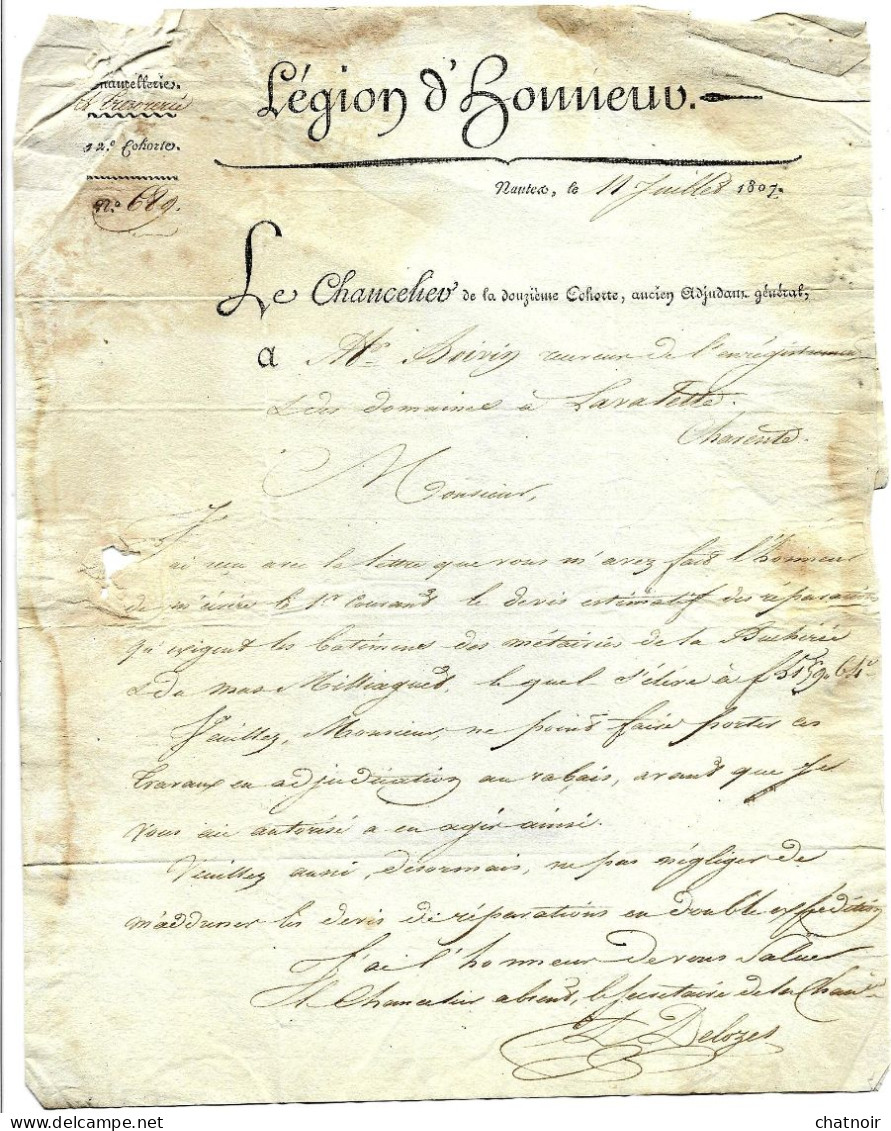 Chancellerie.
et Trésorerie
12.e Cohorte.
N.o 689.
Légion d'Honneur.
Nantes, le 11 Juillet 1807.
Le Chancelier de la douzième Cohorte, ancien Adjudant général,
A Mr. Boivin receveur de l'enrégistrement
& des domaines à Lavalette.
Charente.
Monsieur,
J'ai reçu avec la lettre que vous m'avez fait l'honneur
de m'écrire le 1er courant le devis estimatif des réparations
qu'exigent les batimens des métairies de la
& du mas Milliaguet, le quel s'élève à
Veuillez, Monsieur, ne point faire porter ces
travaux en adjudication au rabais, avant que je
vous aie autorisé a en agir ainsi.
Veuillez aussi, désormais, ne pas négliger de
m'adresser les devis de réparations en double expédition
J'ai l'honneur de vous saluer
Le Chancelier absent, le Secrétaire de la Chancie
Delozes
chatnoir